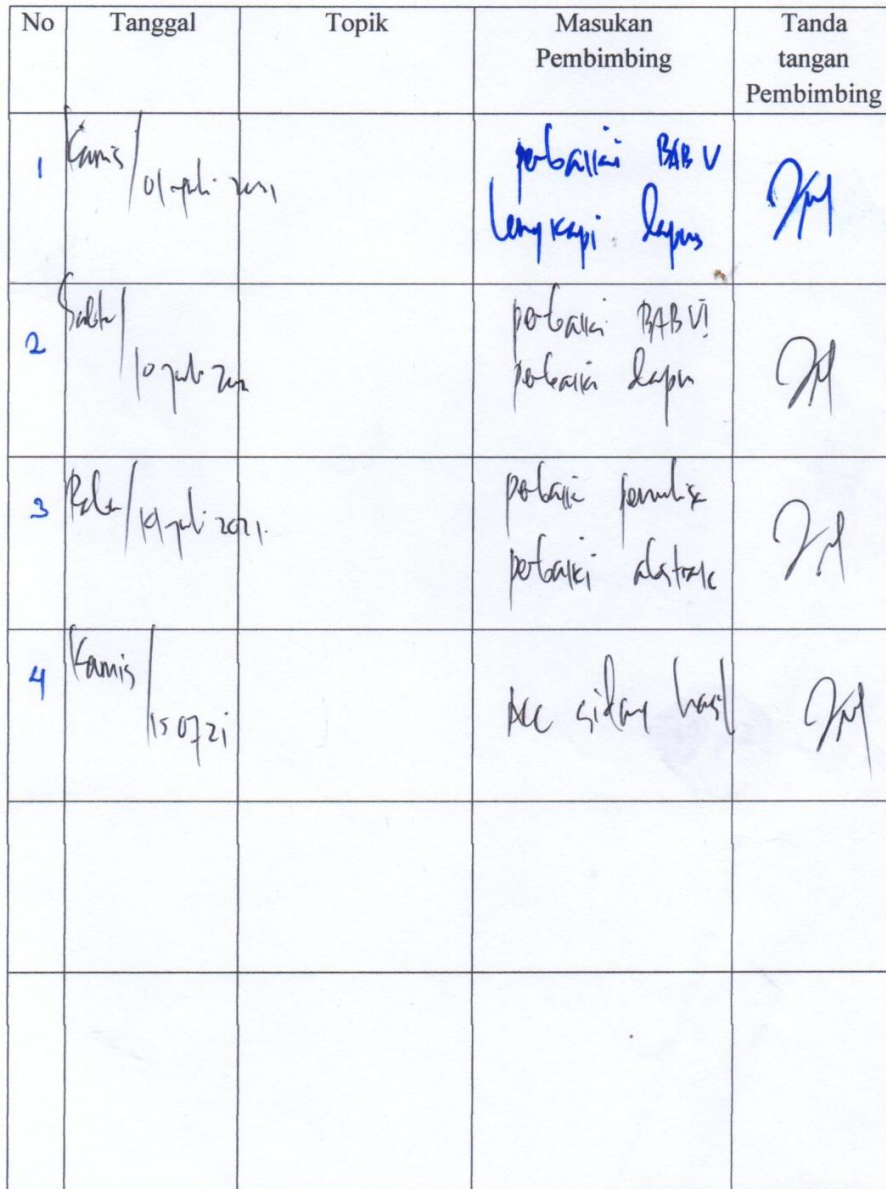 No Tanggal Topik Masukan Pembimbing Tanda tangan Pembimbing
1 Kamis / 01 juli 2021 perbaiki BAB V
lengkapi dapus
2 Sabtu / 10 juli 2021 perbaiki BAB VI
perbaiki dapus
3 Rabu / 14 juli 2021. perbaiki penulisan
perbaiki abstrak
4 Kamis / 15 07 21 Acc sidang hasil